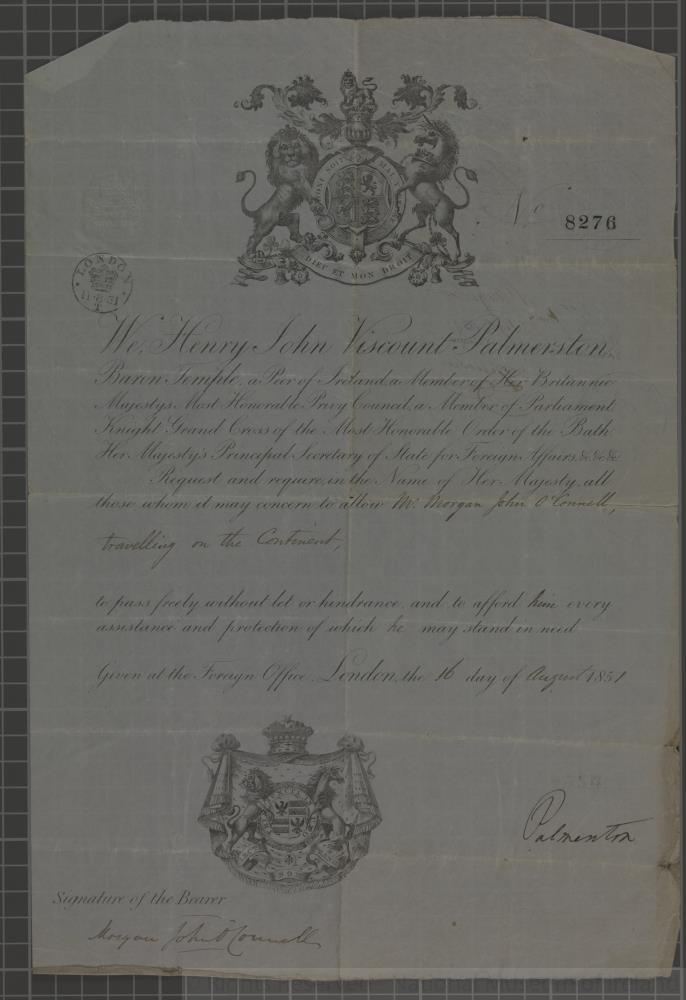 HONI SOIT MAL
DIEU ET MON DROIT
No 8276
LONDON
We, Henry John Viscount Palmerston,
Baron Temple, a Peer of Ireland, a Member of Her Britannic
Majestys Most Honorable Privy Council, a Member of Parliament
Knight Grand Cross of the Most Honorable Order of the Bath
Her Majesty's Principal Secretary of State for Foreign Affairs &c &c &c
Request and require, in the Name of Her Majesty, all
those whom it may concern to allow Mr. Morgan John O'Connell,
travelling on the Continent,
to pass freely without let or hindrance, and to afford him every
assistance and protection of which he may stand in need
Given at the Foreign Office, London, the 16 day of August 1851
Palmerston
Signature of the Bearer
Morgan John O'Connell
National Museum of Ireland